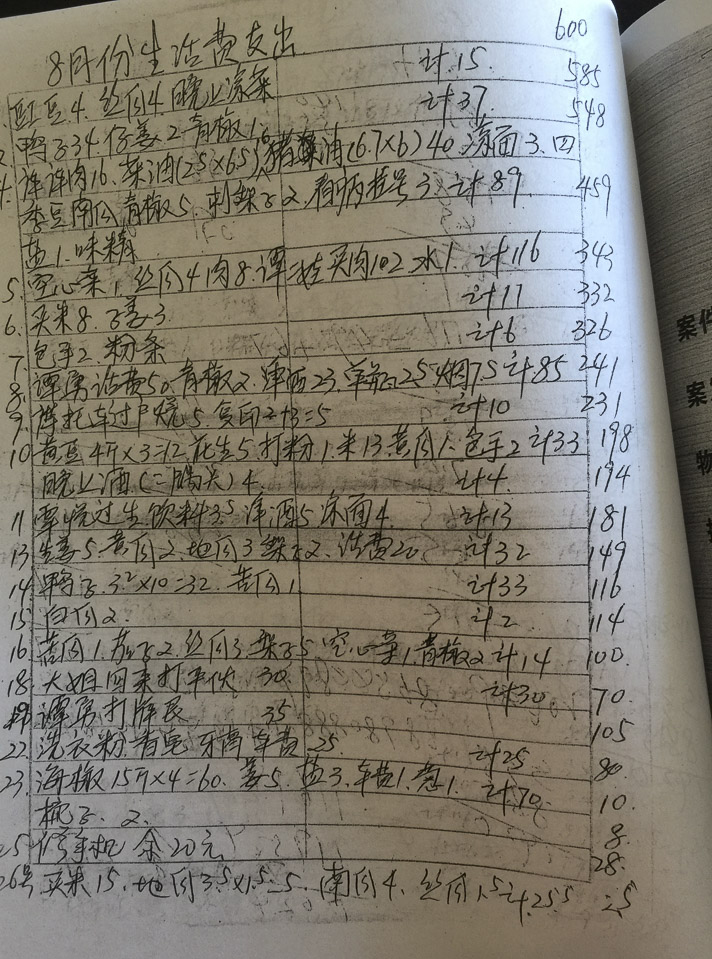 600
8月份生活费支出
豇豆4. 丝瓜4. 晚上凉菜 计15. 585
鸭子34 仔姜.2 青椒1. 计37. 548
肉16. 菜油(2.5×6.5) 猪油(6.7×6)40. 面3. 四
季豆南瓜青椒5. 茄子2. 看病挂号3. 计89 459
盐1. 味精
5. 空心菜1. 丝瓜4 肉8. 谭二娃买肉102 水1. 计116 343
6. 买米8. 子姜3 计11 332
7 包子2. 粉条 计6 326
8. 谭勇话费50. 青椒2. 23. 2.5 烟7.5 计85 241
9. 摩托车过户烧5. 复印2+3=5 计10 231
10 黄豆4斤×3=12. 花生5. 打粉1. 米13. 黄瓜1. 包子2 计33 198
晚上酒(二锅头)4. 计4. 194
11 过生 饮料3.5 洋酒5 面4. 计13 181
13 生姜5. 黄瓜2. 地瓜3 茄子2. 话费20 计32 149
14 鸭子. 3.2×10=32. 苦瓜1 计33 116
15 白瓜2. 计2 114
16 苦瓜1. 茄子2. 丝瓜3. 茄子5. 空心菜1. 青椒2. 计14 100.
18 大姐回来打平伙 30 计30 70
谭勇打牌 35 105
22. 洗衣粉 香皂 牙膏 车费25 计25 80
23. 海椒15斤×4=60. 姜5. 盐3. 车费1. 葱1. 计70. 10.
桃子. 2. 8.
25 修手机 余20元 28.
26号 买米15. 地瓜3.5×1.5=5. 南瓜4. 丝瓜1.5 计25.5 2.5
案件
案
物